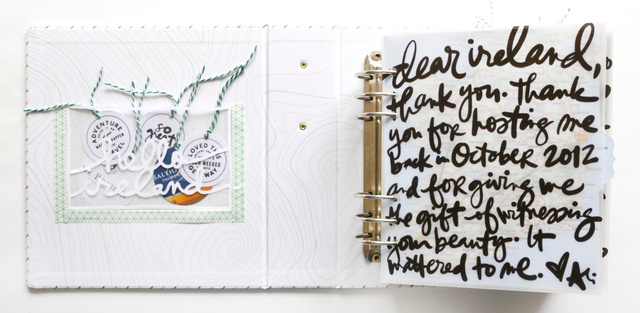 ADVENTURE
TRAVEL
GO
LOVED THIS
NEEDED
GET
WAY
hello
ireland
SALTHILL
dear ireland,
thank you. thank
you for hosting me
back in October 2012
and for giving me
the gift of witnessing
your beauty. It
mattered to me. ♥ Ali